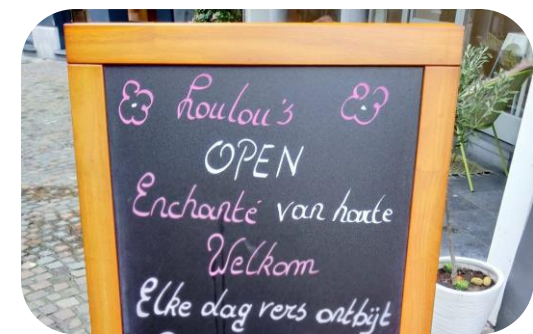 Loulou's
OPEN
Enchanté van harte
Welkom
Elke dag vers ontbijt